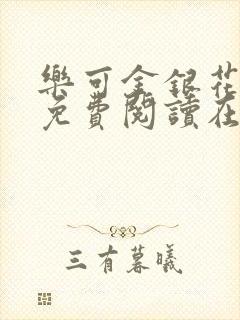 樂可金銀花
免費閱讀在
三有暮曦